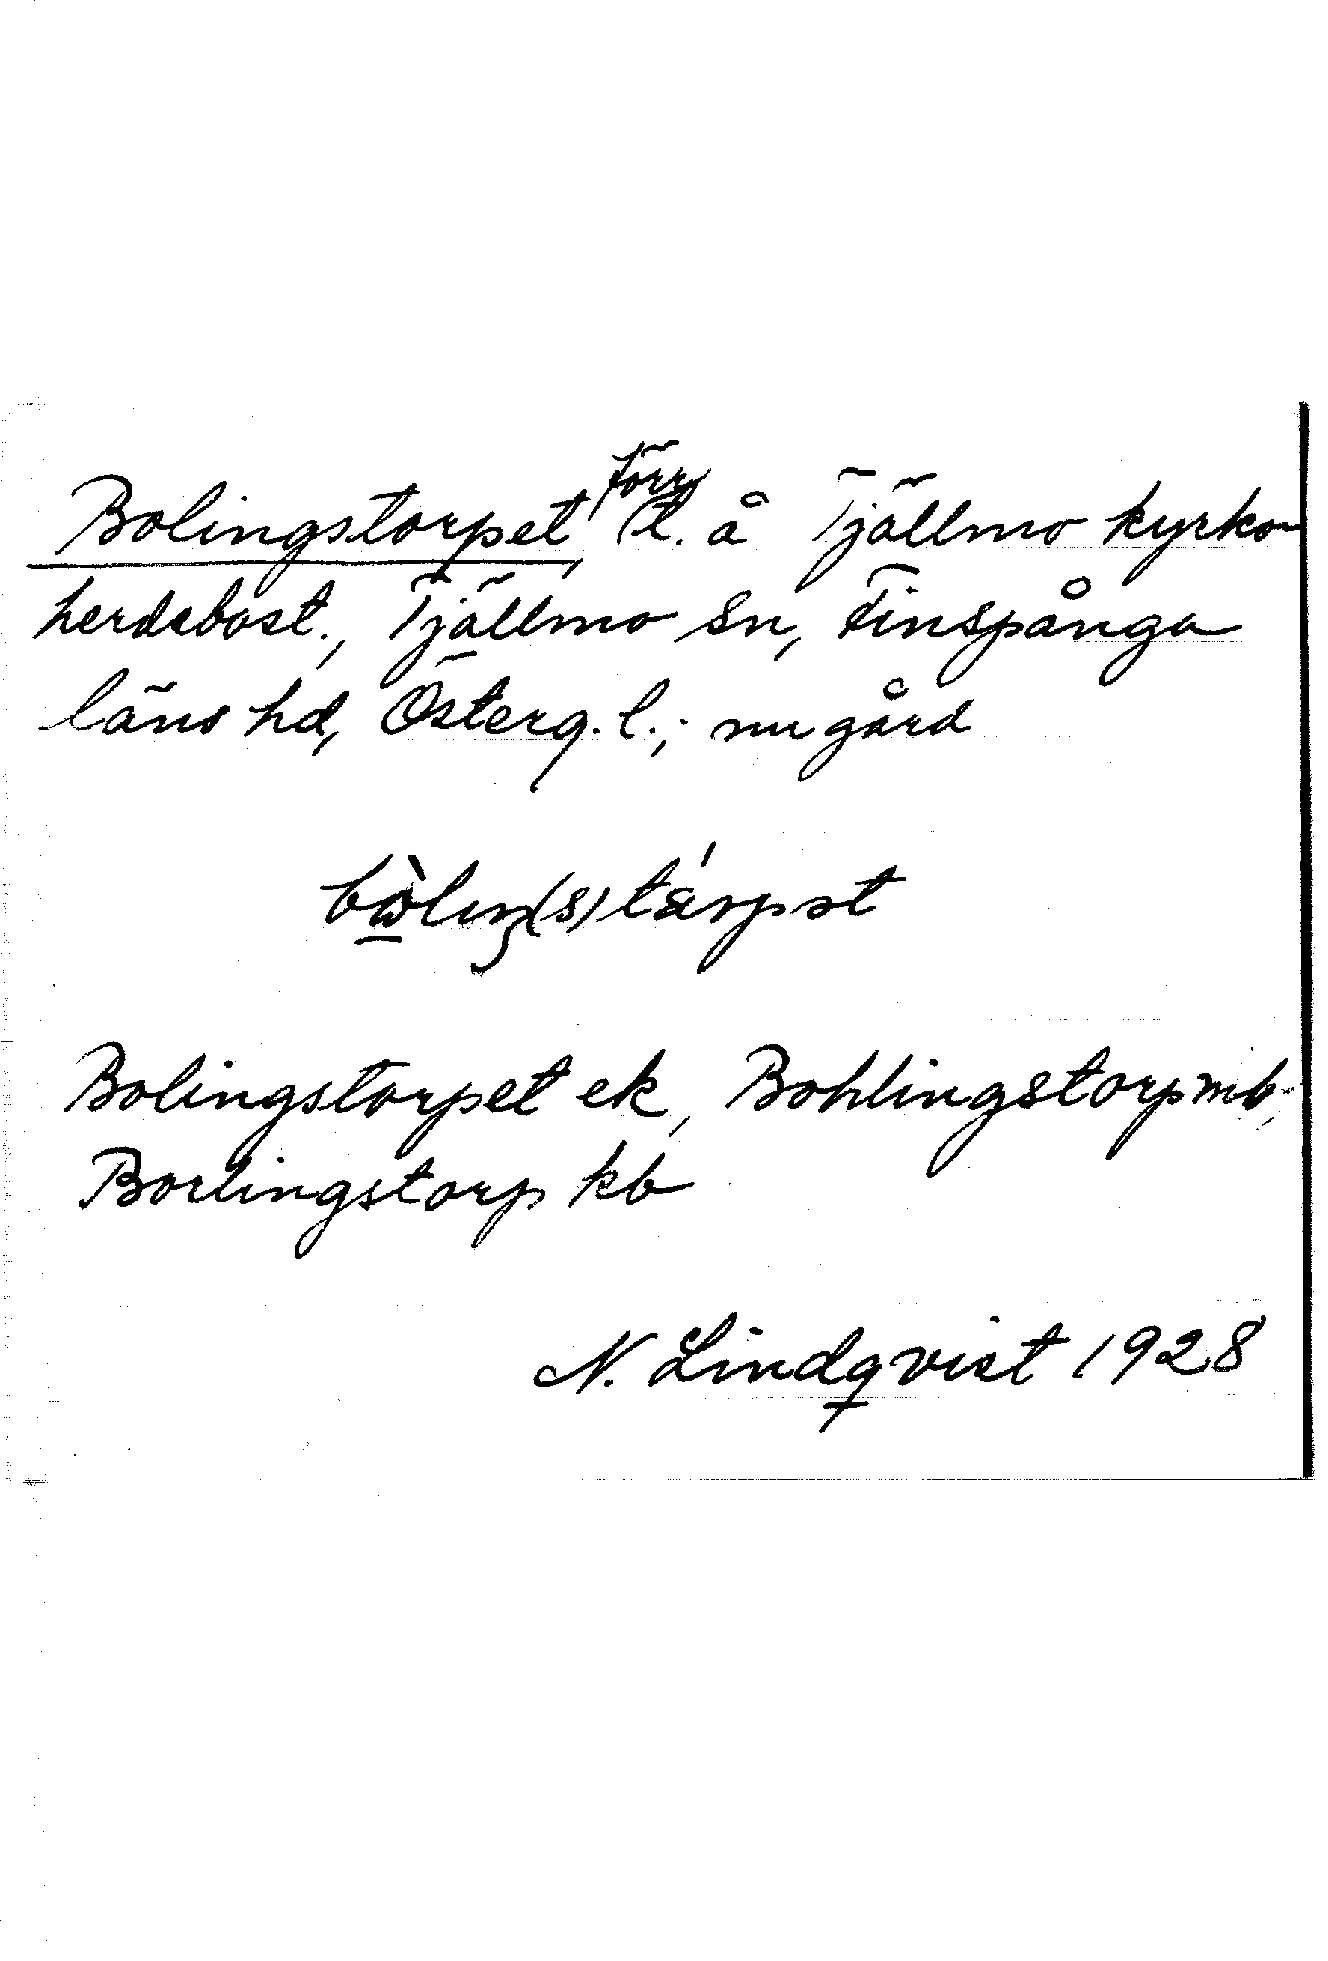 Bolingstorpet, förr t. å Tjällmo kyrko-
herdebost., Tjällmo sn, Finspånga
läns hd, Österg. l.; nu gård
Bolingstorpet ek, Bohlingstorp mb,
Borlingstorp kb
N. Lindqvist 1928